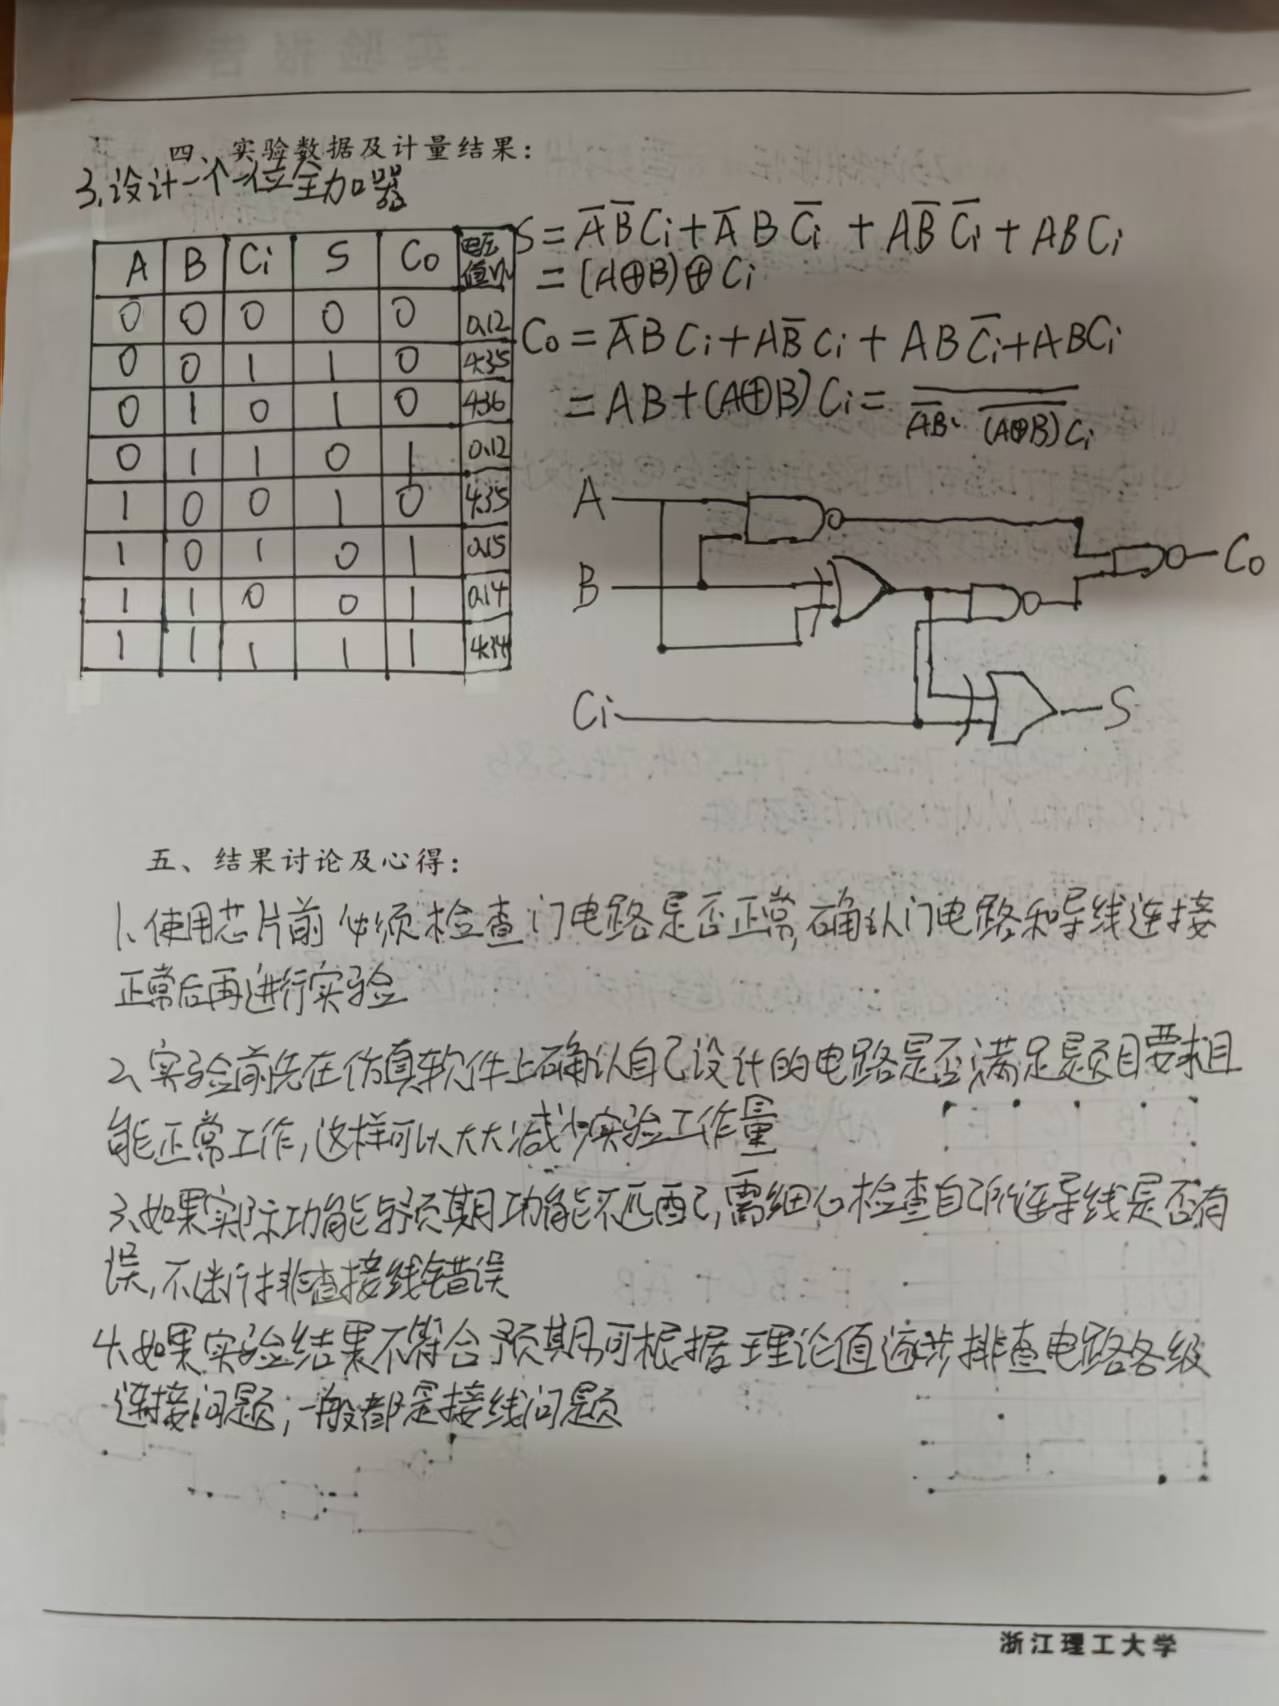 四、实验数据及计量结果：
3.设计一个一位全加器
A B Ci S Co 电压值/V
0 0 0 0 0 0.12
0 0 1 1 0 4.35
0 1 0 1 0 4.36
0 1 1 0 1 0.12
1 0 0 1 0 4.35
1 0 1 0 1 0.15
1 1 0 0 1 0.14
1 1 1 1 1 4.34
S = A̅ B̅ Ci + A̅ B C̅i̅ + A B̅ C̅i̅ + ABCi
= (A⊕B)⊕Ci
Co = A̅ B Ci + A B̅ Ci + AB C̅i̅ + ABCi
= AB + (A⊕B) Ci = \overline{\overline{AB}·\overline{(A⊕B)Ci}}
A
B
Ci
Co
S
五、结果讨论及心得：
1、使用芯片前必须检查门电路是否正常，确认门电路和导线连接
正常后再进行实验
2、实验前先在仿真软件上确认自己设计的电路是否满足题目要求且
能正常工作，这样可以大大减少实验工作量
3、如果实际功能与预期功能不匹配，需细心检查自己所连导线是否有
误，不断排查接线错误
4、如果实验结果不符合预期，可根据理论值逐步排查电路各级
连接问题；一般都是接线问题
浙江理工大学